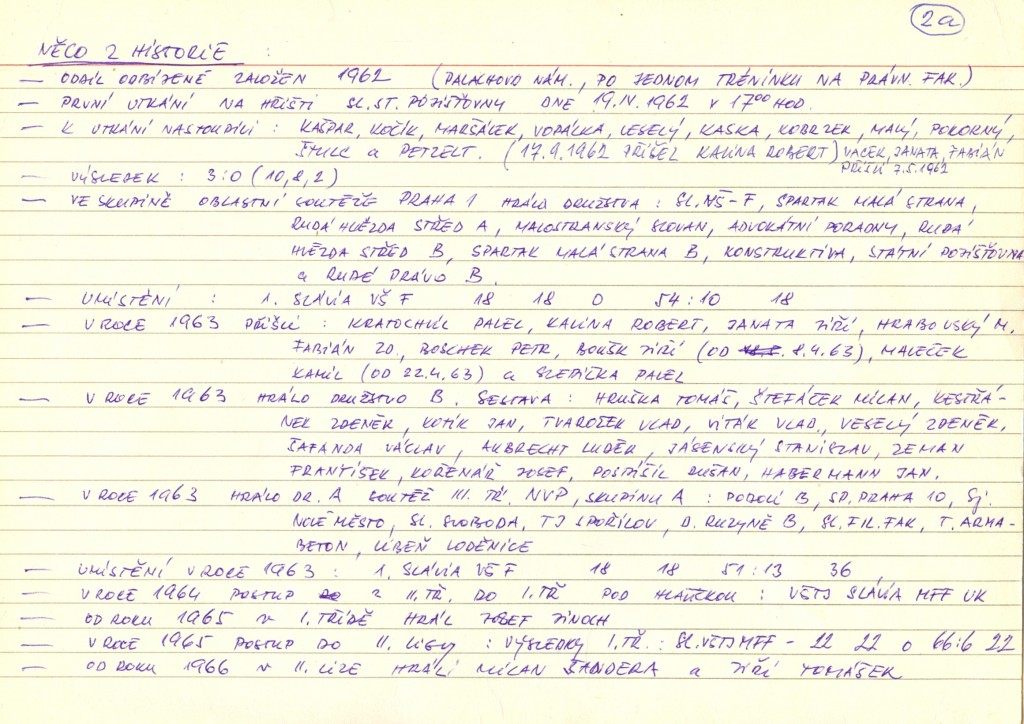 2a
NĚCO Z HISTORIE :
— ODDÍL ODBÍJENÉ ZALOŽEN 1962 (PALACHOVO NÁM., PO JEDNOM TRÉNINKU NA PRÁVN. FAK.)
— PRVNÍ UTKÁNÍ NA HŘIŠTI SL. ST. POJIŠŤOVNY DNE 19.IV.1962 V 17⁰⁰ HOD.
— K UTKÁNÍ NASTOUPILI : KAŠPAR, KOČÍK, MARŠÁLEK, VOPÁLKA, VESELÝ, KASKA, KOBRZEK, MALÝ, POKORNÝ,
ŠTULC a PETZELT. (17.9.1962 PŘIŠEL KALINA ROBERT) VACEK, JANATA, FABIÁN
PŘIŠLI 7.5.1962
— VÝSLEDEK : 3:0 (10,8,2)
— VE SKUPINĚ OBLASTNÍ SOUTĚŽE PRAHA 1 HRÁLA DRUŽSTVA : SL. VŠ-F, SPARTAK MALÁ STRANA,
RUDÁ HVĚZDA STŘED A, MALOSTRANSKÝ SLOVAN, ADVOKÁTNÍ PORADNY, RUDÁ
HVĚZDA STŘED B, SPARTAK MALÁ STRANA B, KONSTRUKTIVA, STÁTNÍ POJIŠŤOVNA
a RUDÉ PRÁVO B.
— UMÍSTĚNÍ : 1. SLÁVIA VŠ F 18 18 0 54:10 18
— V ROCE 1963 PŘIŠLI : KRATOCHVÍL PAVEL, KALINA ROBERT, JANATA JIŘÍ, HRABOVSKÝ M.
FABIÁN ZD., BOSCHEK PETR, BOUŠK JIŘÍ (OD 8.4.63), MALEČEK
KAMIL (OD 22.4.63) a SZEDIČKA PAVEL
— V ROCE 1963 HRÁLO DRUŽSTVO B. SESTAVA : HRUŠKA TOMÁŠ, ŠTEFÁČEK MILAN, KESTŘÁ-
NEK ZDENĚK, KOTÍK JAN, TVAROŽEK VLAD, VITÁK VLAD., VESELÝ ZDENĚK,
ŠAFANDA VÁCLAV, AUBRECHT LUDĚK, JÁSENSKÝ STANISLAV, ZEMAN
FRANTIŠEK, KOŘENÁŘ JOSEF, POSPÍŠIL DUŠAN, HABERMANN JAN.
— V ROCE 1963 HRÁLO DR. A SOUTĚŽ III. TŘ. NVP, SKUPINU A : PODOLÍ B, SP. PRAHA 10, Sj.
NOVÉ MĚSTO, SL. SVOBODA, TJ SPOŘILOV, D. RUZYNĚ B, SL. FIL. FAK, T. ARMA-
BETON, LIBEŇ LODĚNICE
— UMÍSTĚNÍ V ROCE 1963 : 1. SLÁVIA VŠ F 18 18 51:13 36
— V ROCE 1964 POSTUP Z II. TŘ. DO I. TŘ POD HLAVIČKOU : VŠTJ SLÁVIA MFF UK
— OD ROKU 1965 V I. TŘÍDĚ HRÁL JOSEF JINOCH
— V ROCE 1965 POSTUP DO II. LIGY : VÝSLEDKY I. TŘ. : SL. VŠTJ MFF - 22 22 0 66:6 22
— OD ROKU 1966 V II. LIZE HRÁLI MILAN ŠANDERA a JIŘÍ TOMÁŠEK